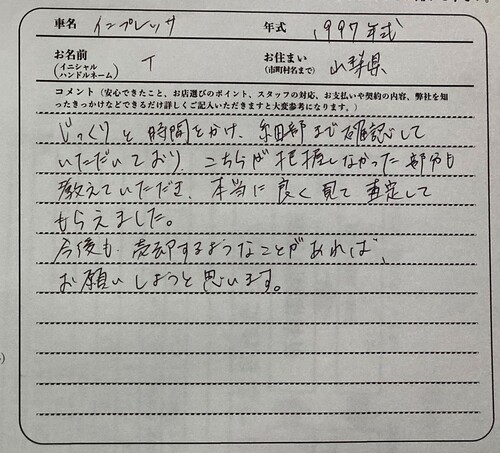 車名 インプレッサ 年式 1997年式
お名前 (イニシャル ハンドルネーム) T お住まい (市町村名まで) 山梨県
コメント(安心できたこと、お店選びのポイント、スタッフの対応、お支払いや契約の内容、弊社を知
ったきっかけなどできるだけ詳しくご記入いただきますと大変参考になります。)
じっくりと時間をかけ、細部まで確認して
いただいており、こちらが把握しなかった部分も
教えていただき、本当に良く見て査定して
もらえました。
今後も売却するようなことがあれば、
お願いしようと思います。